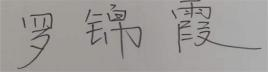 罗锦霞